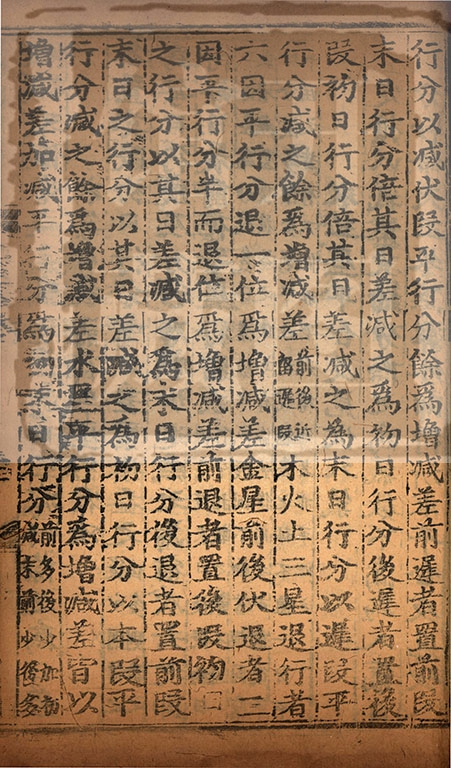 行分以減伏段平行分餘爲增減差前遲者置前段
末日行分倍其日差減之爲初日行分後遲者置後
段初日行分倍其日差減之為末日行分以遲段平
行分減之餘爲增減差前後近留遲段木火土三星退行者
六因平行分退一位爲增減差金星前後伏退者三
因平行分半而退位爲增減差前退者置後段初日
之行分以其日差減之爲末日行分後退者置前段
末日之行分以其日差減之為初日行分以本段平
行分減之餘爲增減差水星平行分爲增減差皆以
增減差加減平行分爲初末日行分前多後少加初減末前少後多